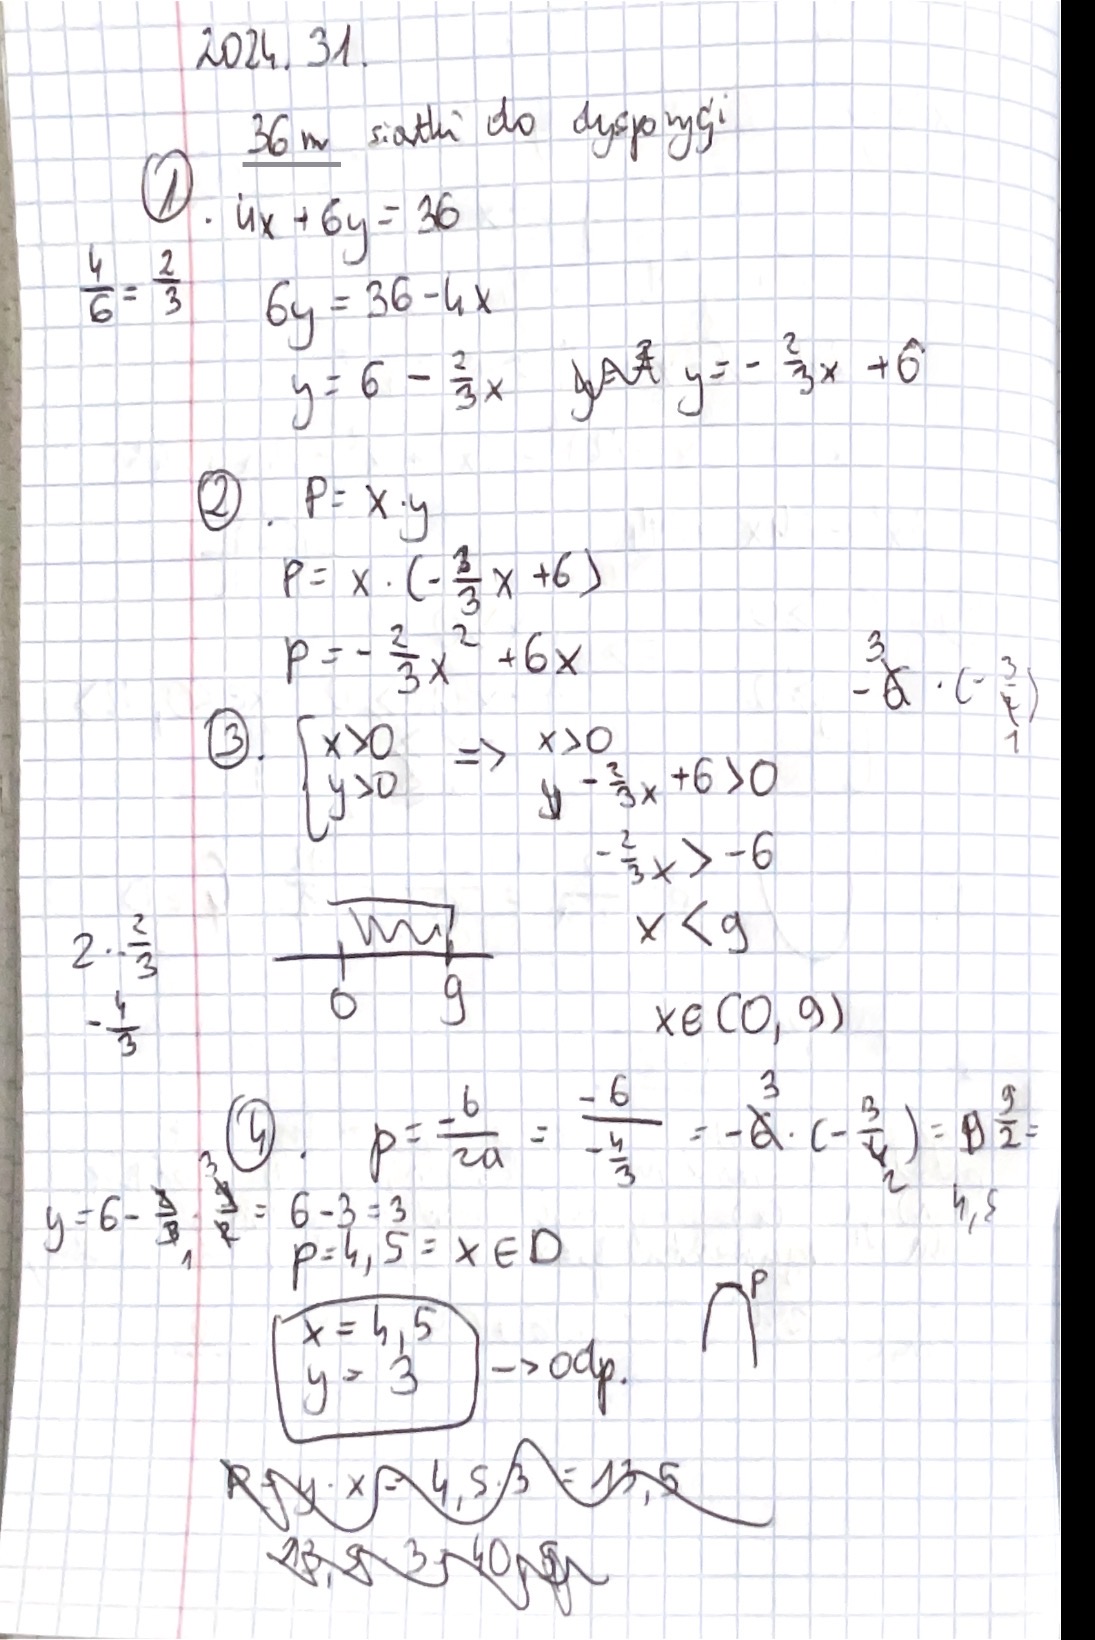 2024. 31.
36 m siatki do dyspozycji
1. 4x + 6y = 36
4/6 = 2/3
6y = 36 - 4x
y = 6 - 2/3x y = -2/3x + 6
2. P = x·y
P = x·(-2/3x + 6)
P = -2/3x² + 6x
3
-6·(-3/2)
1
3. { x>0 => x>0
y>0 -2/3x + 6 > 0
-2/3x > -6
x < 9
2·-2/3
-4/3
0 9
x∈(0, 9)
4. p = -b/2a = -6/(-4/3) = -6·(-3/4) = 9/2 =
3
2
4,5
y = 6 - 2/3·9/2 = 6-3 = 3
3
1
p = 4,5 = x ∈ D
p
x = 4,5
y = 3 -> odp.
P = y·x = 4,5·3 = 13,5